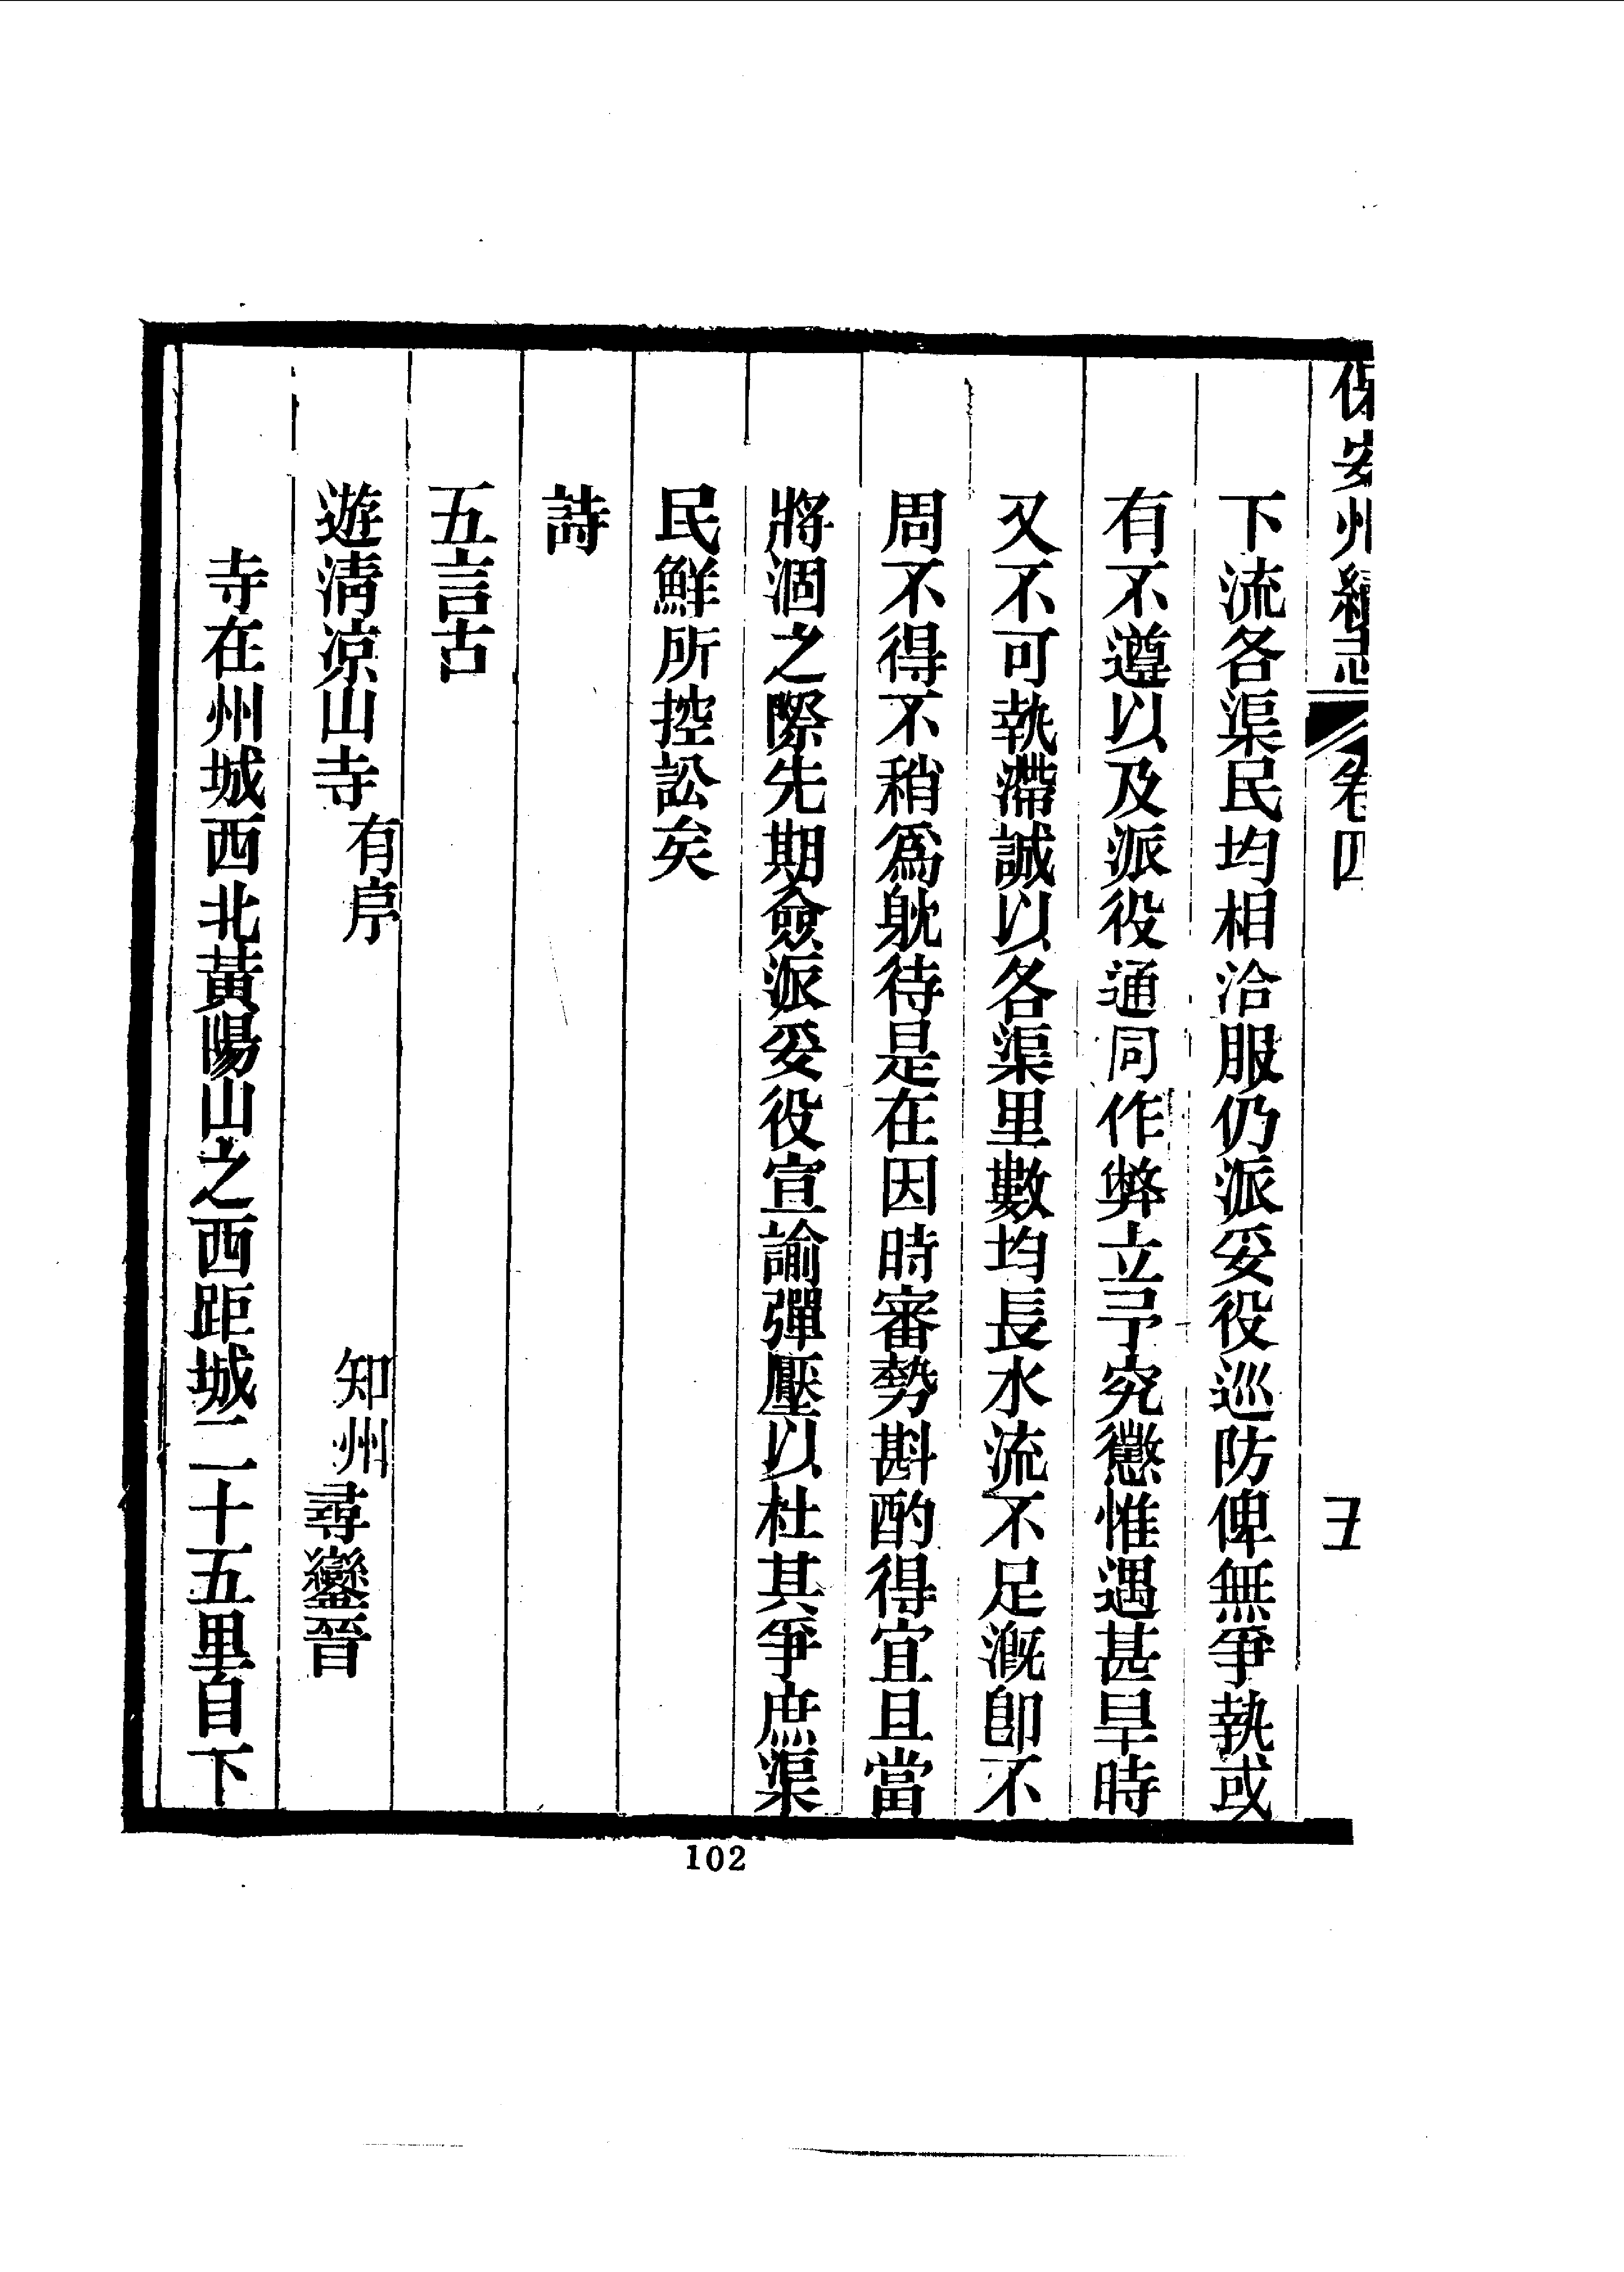 保安州續志 卷四 五
下流各渠民均相洽服仍派妥役巡防俾無爭執或
有不遵以及派役通同作弊立予究懲惟遇甚旱時
又不可執滯誠以各渠里數均長水流不足溉卽不
周不得不稍爲躭待是在因時審勢斟酌得宜且當
將涸之際先期僉派妥役宣諭彈壓以杜其爭庶渠
民鮮所控訟矣
詩
五言古
遊淸凉山寺有序 知州尋鑾晉
寺在州城西北黃陽山之西距城二十五里自下
102